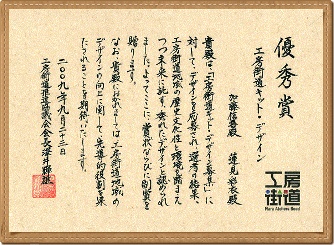 優秀賞
工房街道キット・デザイン
加藤信吾殿 蓮見彩衣殿
貴殿は、「工房街道キット・デザイン募集」に
対して、デザインを応募され、選考の結果、
工房街道地域の歴史文化性と環境を踏まえ
つつ未来に託す、優れたデザインと認められ
ました。よってここに賞状ならびに副賞を
贈ります。
なお、貴殿におかれましては工房街道地域の
デザインの向上に関して、先導的役割を果
たされることを期待いたします。
二〇〇九年九月二十三日
工房街道推進協議会会長
工房
街道
Nara Ateliers Road